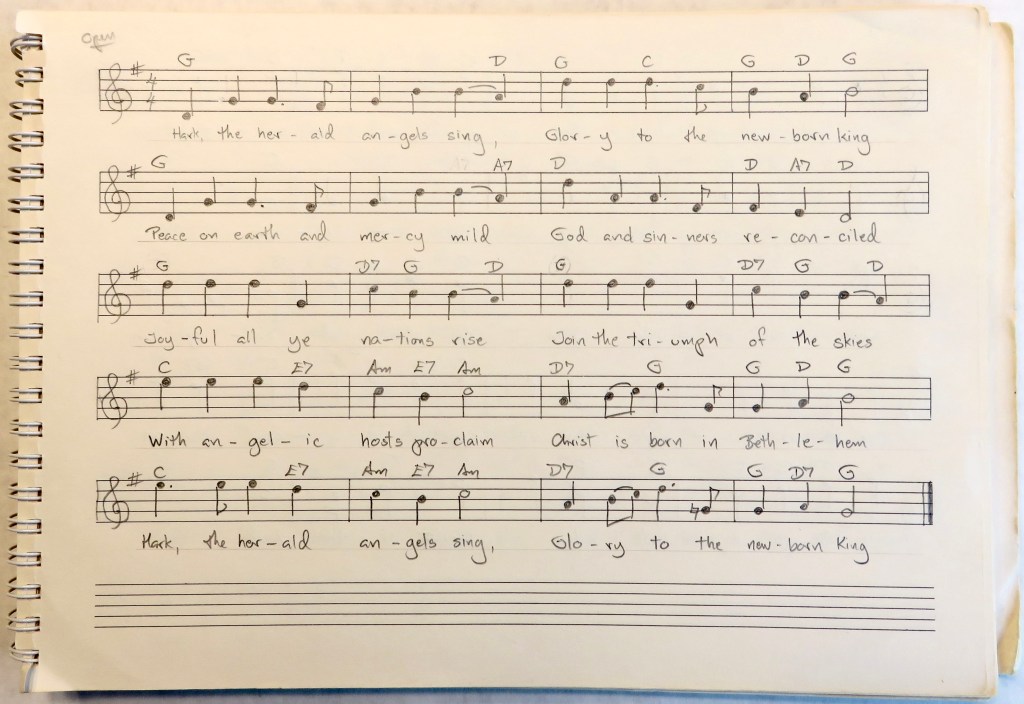 Open
G D G C G D G
4
4
Hark, the her - ald an - gels sing, Glor - y to the new - born king
G A7 D D A7 D
Peace on earth and mer - cy mild God and sin - ners re - con - ciled
G D7 G D G D7 G D
Joy - ful all ye na - tions rise Join the tri - umph of the skies
C E7 Am E7 Am D7 G G D G
With an - gel - ic hosts pro - claim Christ is born in Beth - le - hem
C E7 Am E7 Am D7 G G D7 G
Hark, the her - ald an - gels sing, Glo - ry to the new - born King